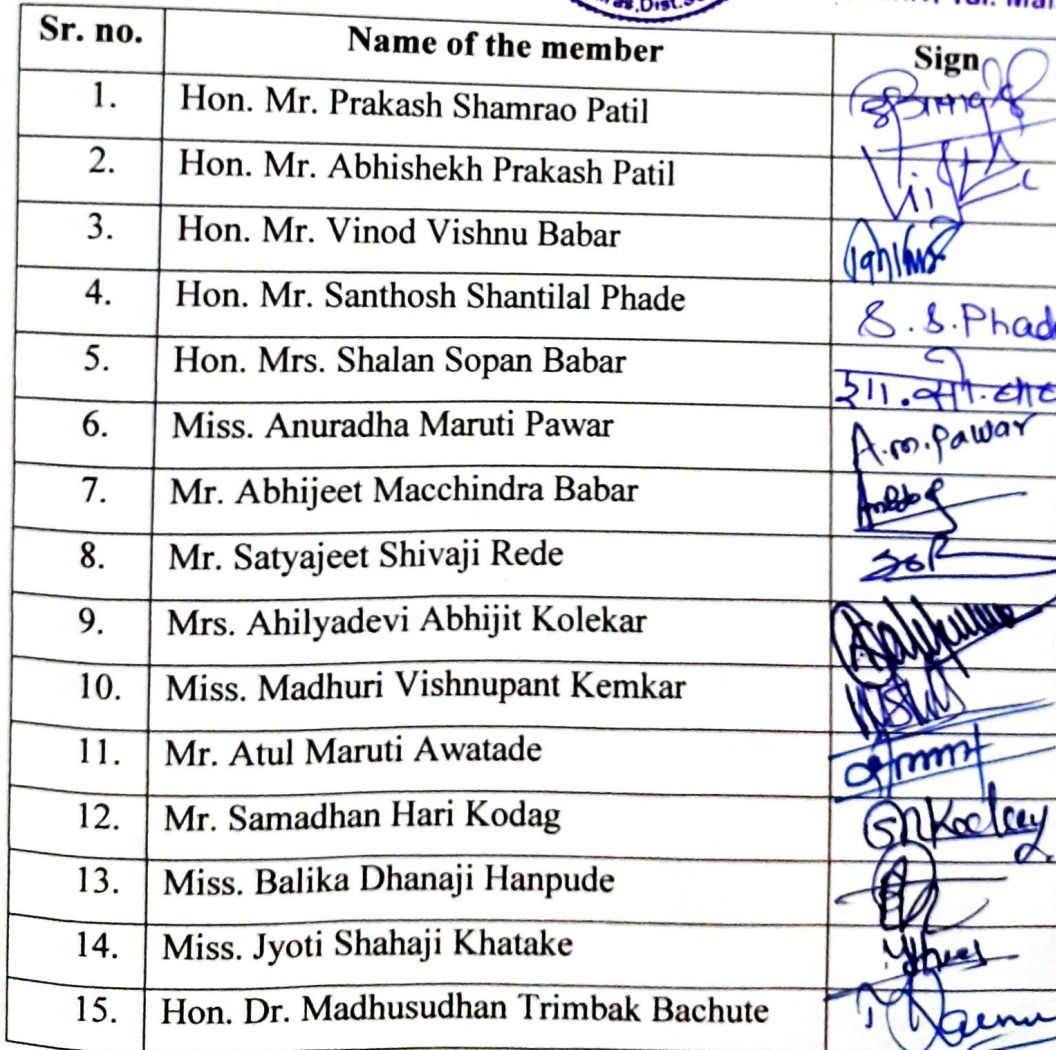 ras,Dist.S
Tal. Mal
Sr. no. Name of the member Sign
1. Hon. Mr. Prakash Shamrao Patil
2. Hon. Mr. Abhishekh Prakash Patil
3. Hon. Mr. Vinod Vishnu Babar
4. Hon. Mr. Santhosh Shantilal Phade S.S.Phad
5. Hon. Mrs. Shalan Sopan Babar
6. Miss. Anuradha Maruti Pawar A.m.pawar
7. Mr. Abhijeet Macchindra Babar
8. Mr. Satyajeet Shivaji Rede
9. Mrs. Ahilyadevi Abhijit Kolekar
10. Miss. Madhuri Vishnupant Kemkar
11. Mr. Atul Maruti Awatade
12. Mr. Samadhan Hari Kodag
13. Miss. Balika Dhanaji Hanpude
14. Miss. Jyoti Shahaji Khatake
15. Hon. Dr. Madhusudhan Trimbak Bachute